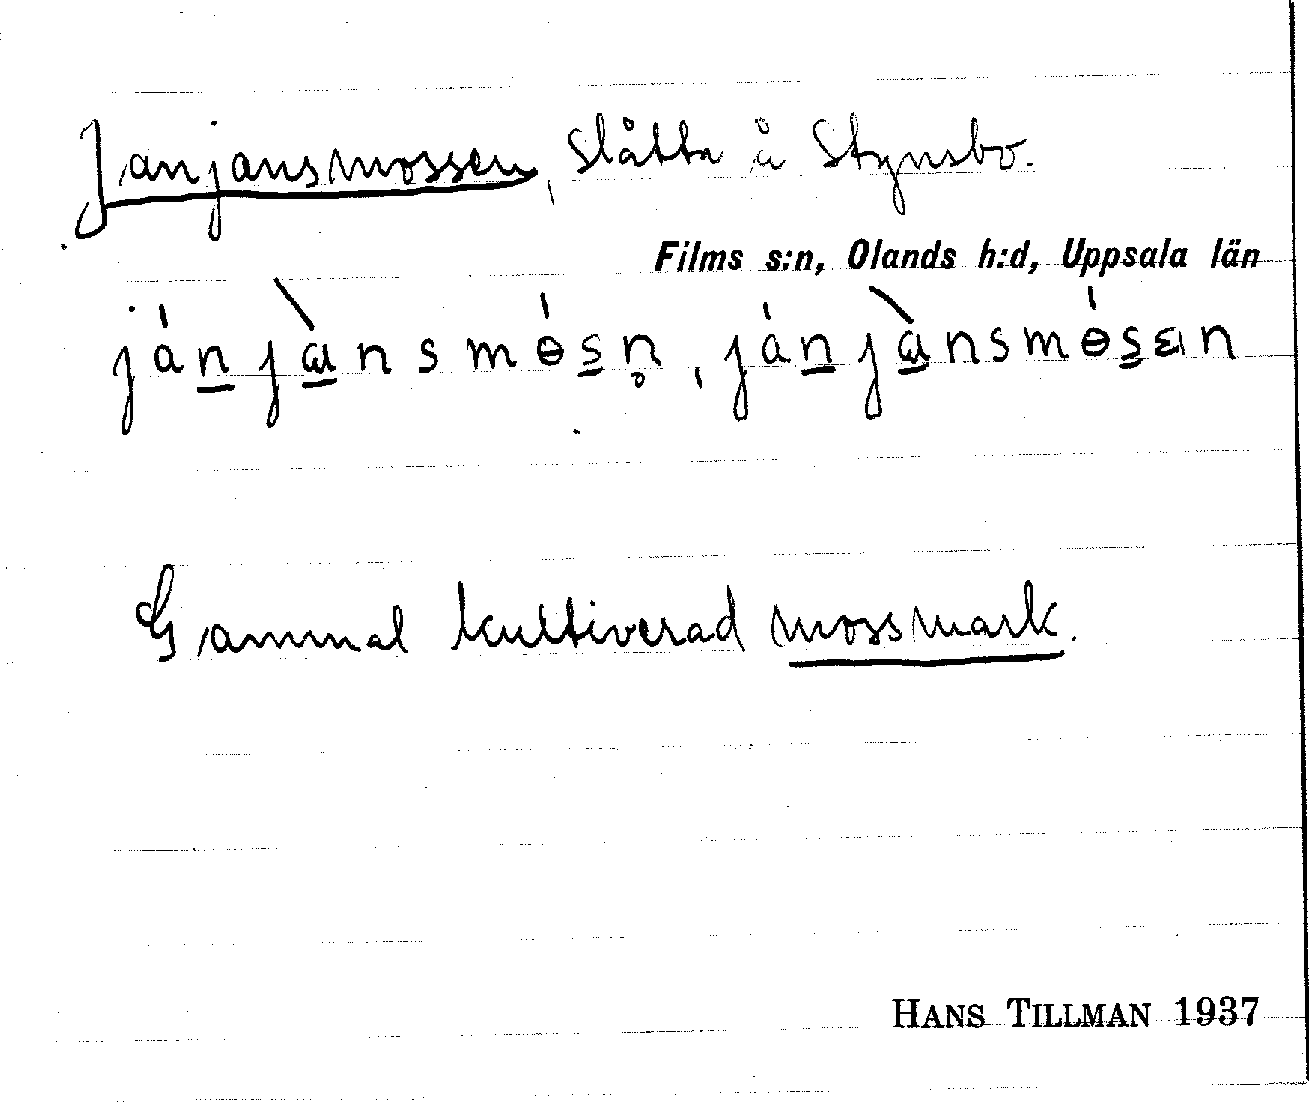 Janjansmossen, slåtta å Stynsbo.
Films s:n, Olands h:d, Uppsala län
ján̲jɑ̲̀nsmɵ́s̲n̥, ján̲jɑ̲̀nsmɵ́s̲ɛn
Gammal kultiverad mossmark.
HANS TILLMAN 1937